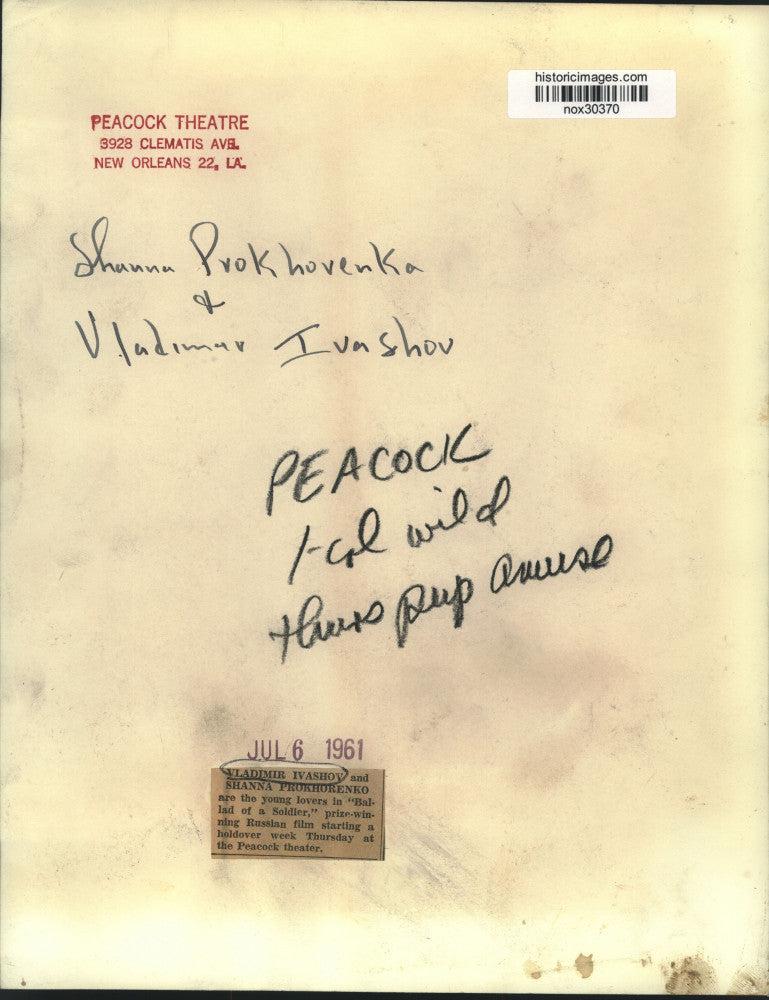 historicimages.com
nox30370
PEACOCK THEATRE
3928 CLEMATIS AVE.
NEW ORLEANS 22, LA.
Shanna Prokhorenka
&
Vladimir Ivashov
PEACOCK
1-col wild
thurs pup amuse
JUL 6 1961
VLADIMIR IVASHOV and
SHANNA PROKHORENKO
are the young lovers in "Bal-
lad of a Soldier," prize-win-
ning Russian film starting a
holdover week Thursday at
the Peacock theater.